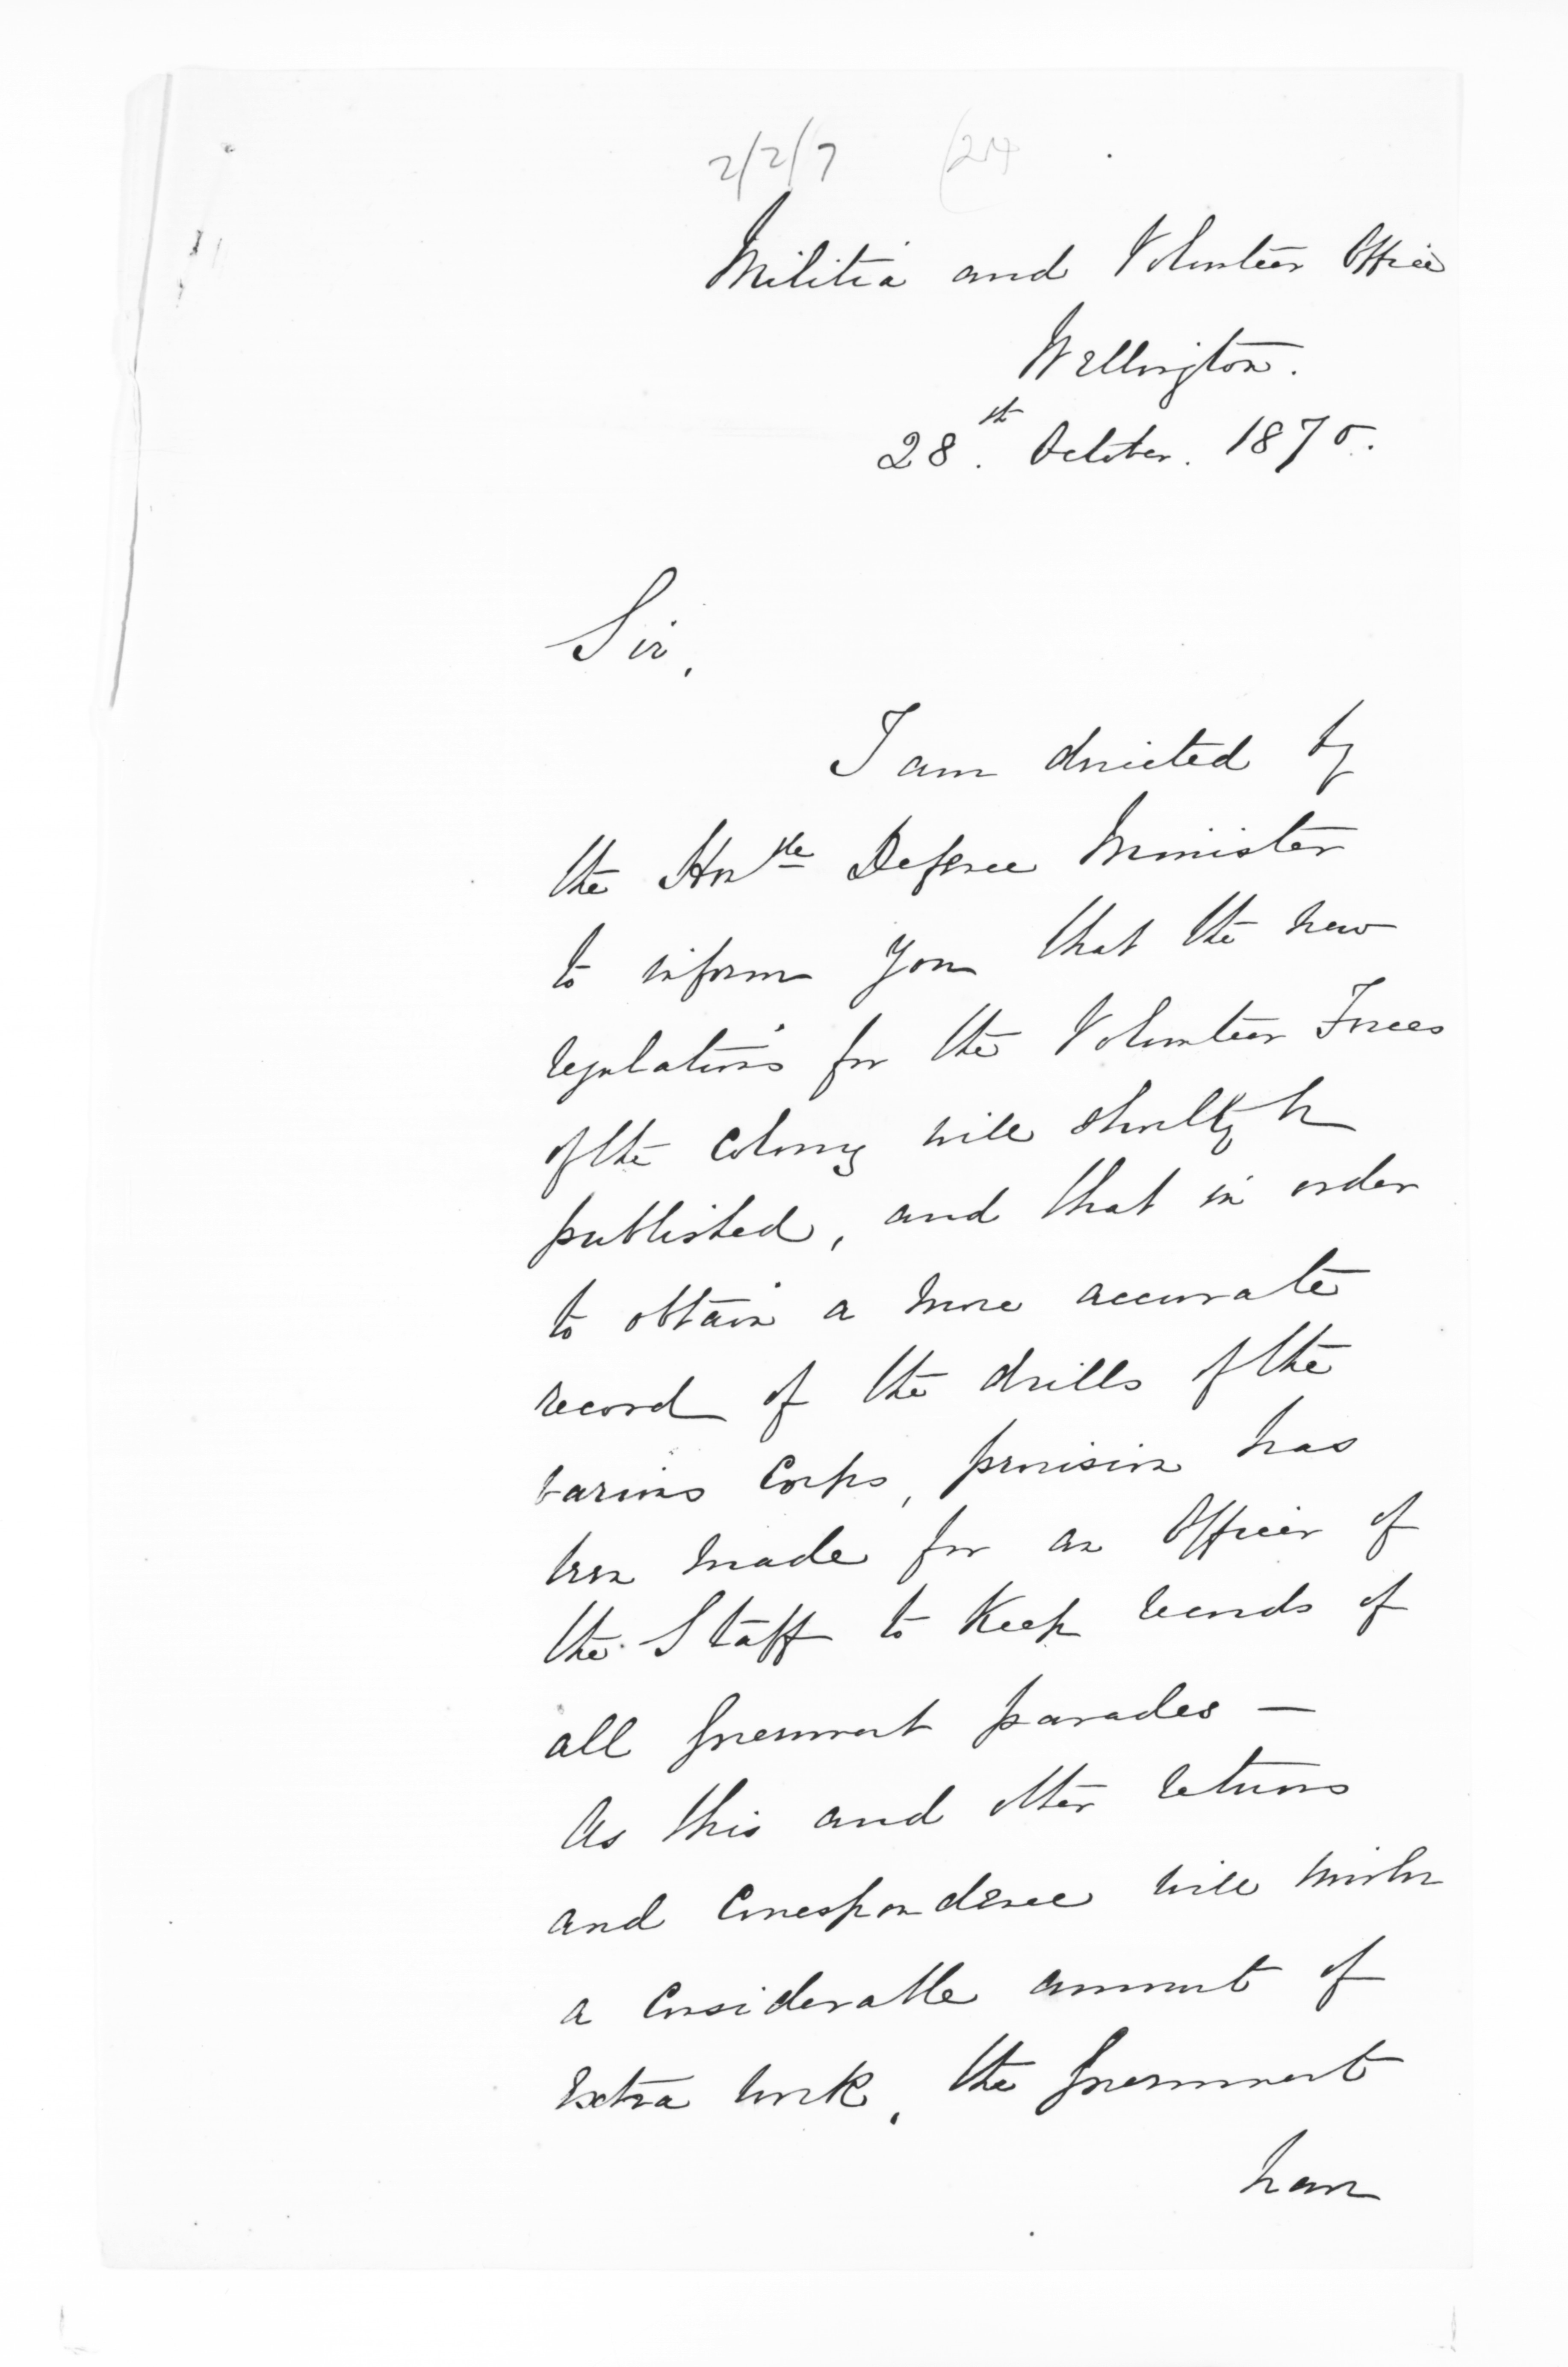 2/2/7 (24
Militia and Volunteer Office
Wellington.
28th. October. 1870.
Sir,
I am directed by
the Honble Defence Minister
to inform you that the new
regulations for the Volunteer Forces
of the Colony will shortly be
published, and that in order
to obtain a more accurate
record of the drills of the
various Corps, provision has
been made for an Officer of
the Staff to keep records of
all Government parades —
As this and other returns
and Correspondence will involve
a Considerable amount of
extra work, the Government
have